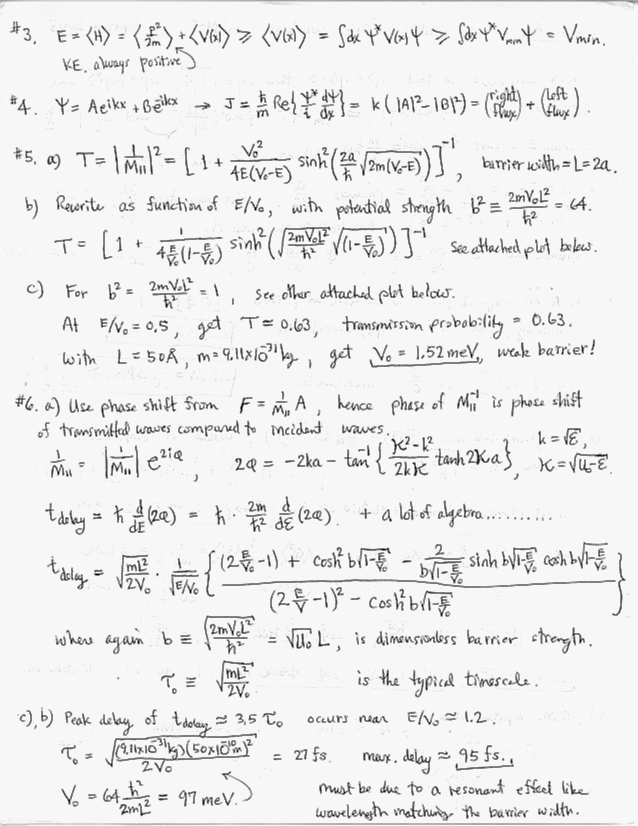 #3. E = ⟨H⟩ = ⟨p²/2m⟩ + ⟨V(x)⟩ ≥ ⟨V(x)⟩ = ∫dx Ψ* V(x) Ψ ≥ ∫dx Ψ* Vmin Ψ = Vmin.
KE. always positive
#4. Ψ = Ae^ikx + Be^-ikx → J = ħ/m Re{Ψ*/i dΨ/dx} = k(|A|² - |B|²) = (right flux) + (left flux).
#5. a) T = |1/M₁₁|² = [1 + V₀²/4E(V₀-E) sinh²(2a/ħ √2m(V₀-E))]⁻¹, barrier width = L = 2a.
b) Rewrite as function of E/V₀, with potential strength b² ≡ 2mV₀L²/ħ² = 64.
T = [1 + 1/(4 E/V₀ (1-E/V₀)) sinh²(√(2mV₀L²/ħ²) √(1-E/V₀))]⁻¹ See attached plot below.
c) For b² = 2mV₀L²/ħ² = 1, see other attached plot below.
At E/V₀ = 0.5, get T ≃ 0.63, transmission probability = 0.63.
With L = 50Å, m = 9.11×10⁻³¹kg, get V₀ = 1.52meV, weak barrier!
#6. a) Use phase shift from F = 1/M₁₁ A, hence phase of M₁₁⁻¹ is phase shift
of transmitted waves compared to incident waves.
1/M₁₁ = |1/M₁₁| e^2iφ, 2φ = -2ka - tan⁻¹{(K²-k²)/2kK tanh 2Ka}, k = √ε, K = √(U₀-ε)
t_delay = ħ d/dE (2φ) = ħ · 2m/ħ² d/dε (2φ). + a lot of algebra..........
t_delay = √(mL²/2V₀) · 1/√(E/V₀) {((2E/V₀ -1) + cosh² b√(1-E/V₀) - 2/(b√(1-E/V₀)) sinh b√(1-E/V₀) cosh b√(1-E/V₀)) / ((2E/V -1)² - cosh² b√(1-E/V₀))}
where again b ≡ √(2mV₀L²/ħ²) = √U₀ L, is dimensionless barrier strength.
τ₀ ≡ √(mL²/2V₀) is the typical timescale.
c), b) Peak delay of t_delay ≈ 3.5 τ₀ occurs near E/V₀ ≃ 1.2.
τ₀ = √((9.11×10⁻³¹kg)(50×10⁻¹⁰m)²/2V₀) = 27 fs. max. delay ≈ 95 fs.
V₀ = 64 ħ²/2mL² = 97 meV. must be due to a resonant effect like
wavelength matching the barrier width.